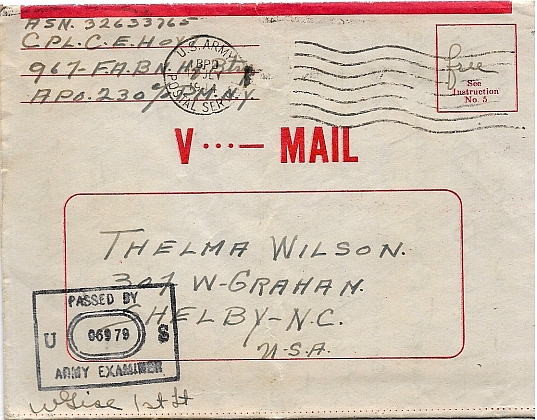 ASN. 32633765
CPL. C. E. Hoy
967-F.A.BN.
A.P.O. 230 % P.M. N.Y.
U.S. ARMY
APO
POSTAL SER
free
See
Instruction
No. 5
V···— MAIL
THELMA WILSON.
307 W-GRAHAN.
SHELBY-N.C.
U.S.A.
PASSED BY
U 06979 S
ARMY EXAMINER
1st Lt